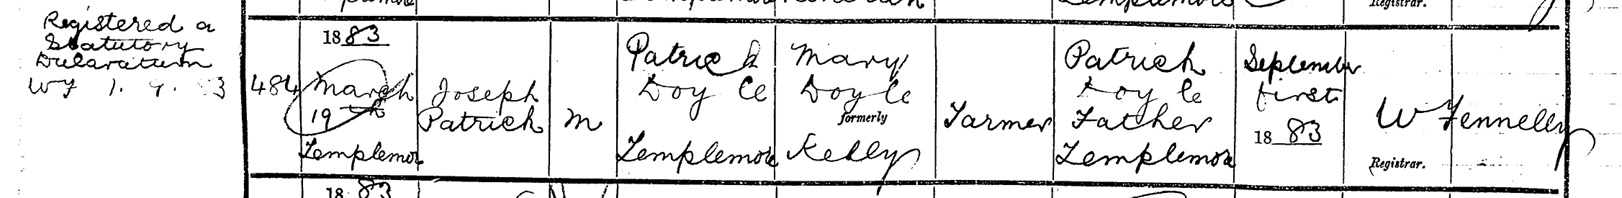 Registered a
Statutory
Declaration
WF 1. 9. 83
484
1883
March
19th
Templemore
Joseph
Patrick
M
Patrick
Doyle
Templemore
Mary
Doyle
formerly
Kelly
Farmer
Patrick
Doyle
Father
Templemore
September
first
1883
W Fennelly
Registrar.
Registrar.
1883